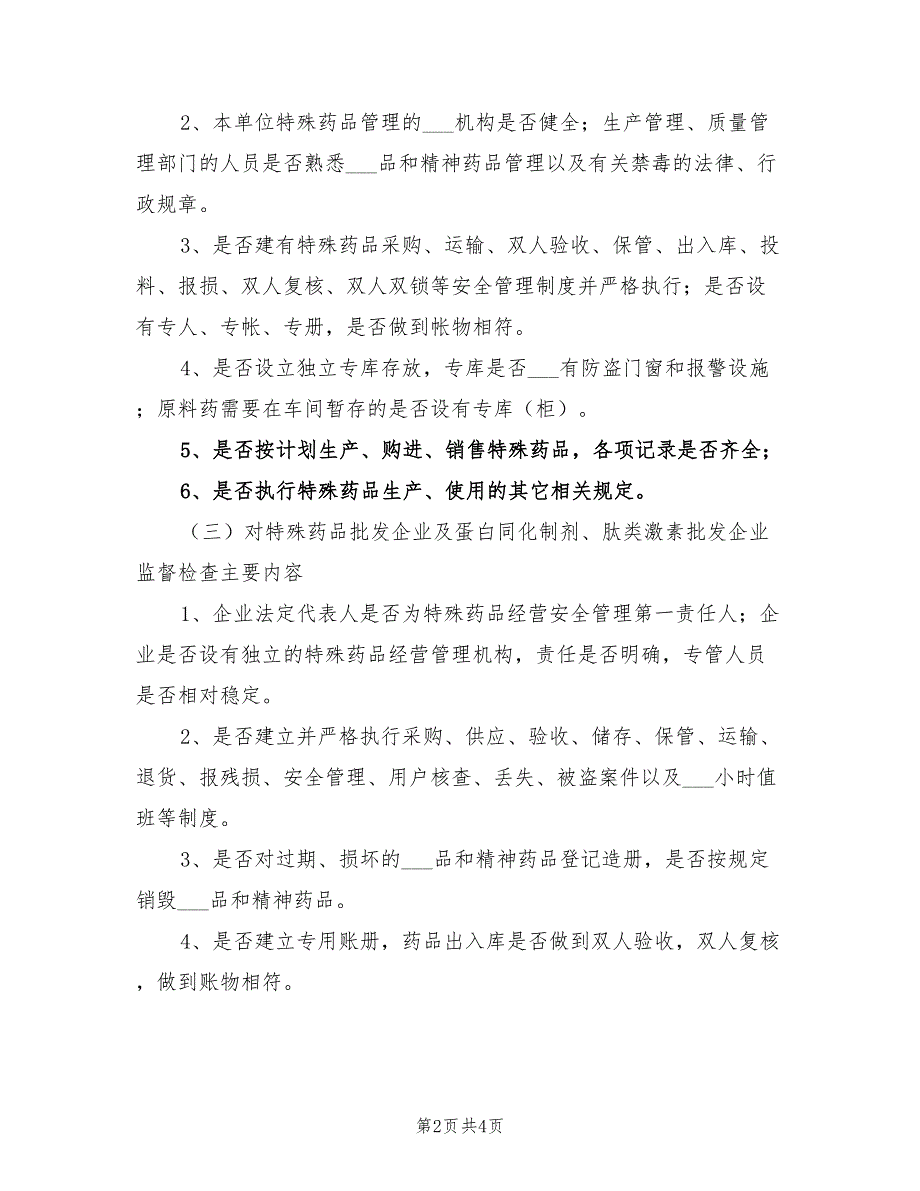 2、本单位特殊药品管理的___机构是否健全；生产管理、质量管
理部门的人员是否熟悉___品和精神药品管理以及有关禁毒的法律、行
政规章。
3、是否建有特殊药品采购、运输、双人验收、保管、出入库、投
料、报损、双人复核、双人双锁等安全管理制度并严格执行；是否设
有专人、专帐、专册，是否做到帐物相符。
4、是否设立独立专库存放，专库是否___有防盗门窗和报警设施
；原料药需要在车间暂存的是否设有专库（柜）。
5、是否按计划生产、购进、销售特殊药品，各项记录是否齐全；
6、是否执行特殊药品生产、使用的其它相关规定。
（三）对特殊药品批发企业及蛋白同化制剂、肽类激素批发企业
监督检查主要内容
1、企业法定代表人是否为特殊药品经营安全管理第一责任人；企
业是否设有独立的特殊药品经营管理机构，责任是否明确，专管人员
是否相对稳定。
2、是否建立并严格执行采购、供应、验收、储存、保管、运输、
退货、报残损、安全管理、用户核查、丢失、被盗案件以及___小时值
班等制度。
3、是否对过期、损坏的___品和精神药品登记造册，是否按规定
销毁___品和精神药品。
4、是否建立专用账册，药品出入库是否做到双人验收，双人复核
，做到账物相符。
第2页共4页